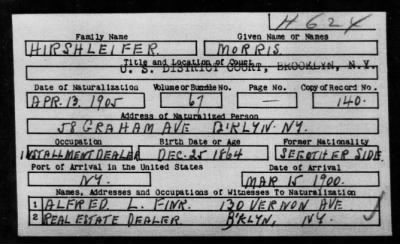 H 624
Family Name Given Name or Names
HIRSHLEIFER MORRIS
Title and Location of Court
U. S. DISTRICT COURT, BROOKLYN, N.Y.
Date of Naturalization Volume or Bundle No. Page No. Copy of Record No.
APR. 13. 1905 67 — 140.
Address of Naturalized Person
58 GRAHAM AVE B'KLYN. NY.
Occupation Birth Date or Age Former Nationality
INSTALLMENT DEALER DEC. 25 1864 SEE OTHER SIDE.
Port of Arrival in the United States Date of Arrival
N.Y. MAR 15 1900.
Names, Addresses and Occupations of Witnesses To Naturalization
1 ALFRED L. FINK. 130 VERNON AVE
2 REAL ESTATE DEALER B'KLYN, NY.